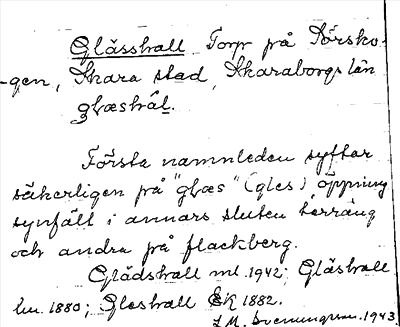 Glässhall Torp på Sörsko-
-gen, Skara stad, Skaraborgs län
glæshâl.
Första namnleden syftar
säkerligen på "glæs" (gles) öppning
synfält i annars sluten terräng
och andra på flackberg.
Glädshall ml. 1942; Glässhall
lm. 1880; Gleshall EK 1882.
1943.